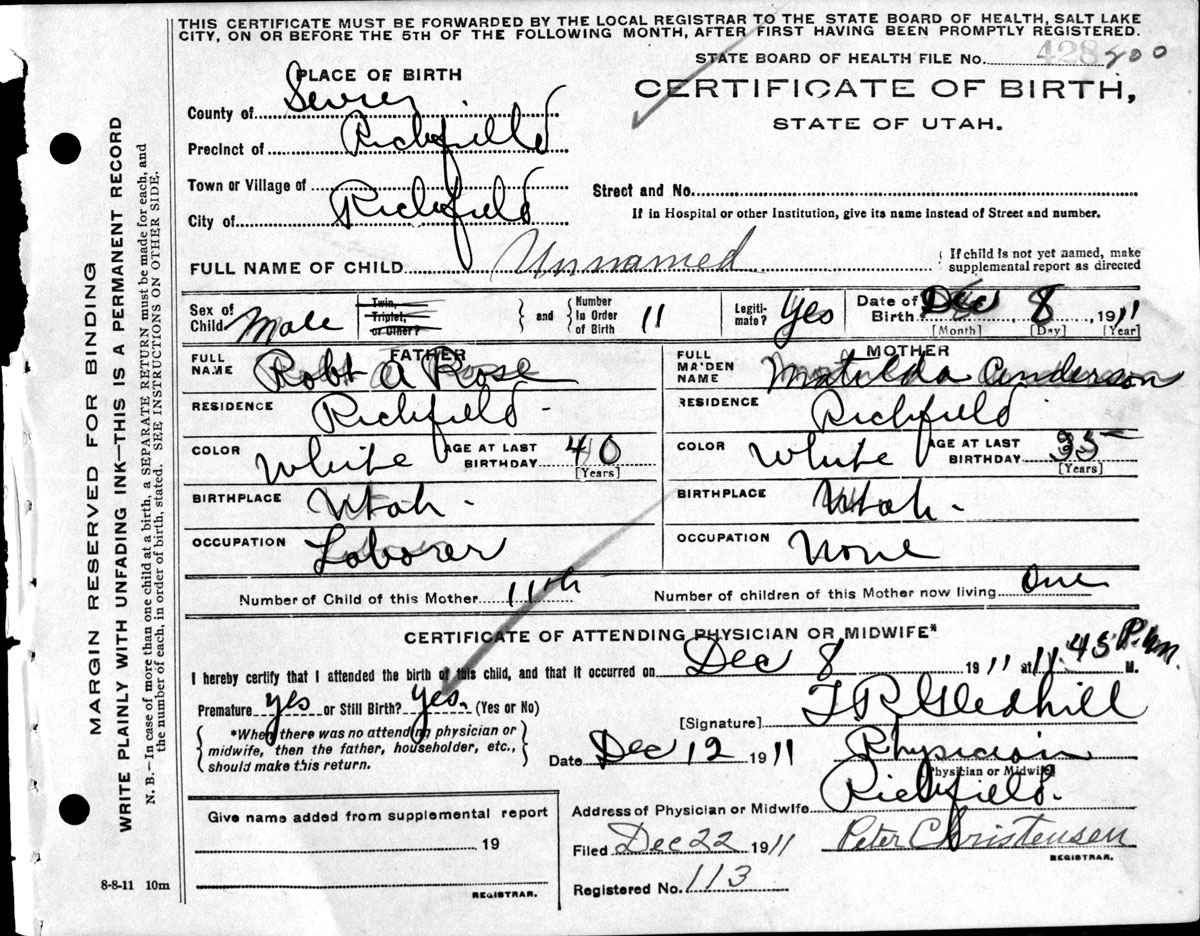 THIS CERTIFICATE MUST BE FORWARDED BY THE LOCAL REGISTRAR TO THE STATE BOARD OF HEALTH, SALT LAKE
CITY, ON OR BEFORE THE 5TH OF THE FOLLOWING MONTH, AFTER FIRST HAVING BEEN PROMPTLY REGISTERED.
STATE BOARD OF HEALTH FILE No. 428
PLACE OF BIRTH
CERTIFICATE OF BIRTH,
STATE OF UTAH.
County of Sevier
Precinct of Richfield
Town or Village of
Street and No.
City of Richfield
If in Hospital or other Institution, give its name instead of Street and number.
FULL NAME OF CHILD Unnamed
If child is not yet named, make
supplemental report as directed
Sex of Child Male
Twin, Triplet, or Other?
and
Number In Order of Birth 11
Legiti-mate? Yes
Date of Birth Dec 8, 1911
[Month] [Day] [Year]
FATHER
FULL NAME Robt A Rose
RESIDENCE Richfield
COLOR White AGE AT LAST BIRTHDAY 40
[Years]
BIRTHPLACE Utah
OCCUPATION Laborer
MOTHER
FULL MAIDEN NAME Matilda Anderson
RESIDENCE Richfield
COLOR White AGE AT LAST BIRTHDAY 35
[Years]
BIRTHPLACE Utah
OCCUPATION None
Number of Child of this Mother 11th Number of children of this Mother now living One
CERTIFICATE OF ATTENDING PHYSICIAN OR MIDWIFE*
I hereby certify that I attended the birth of this child, and that it occurred on Dec 8 1911 at 11.45 P.m M.
Premature yes or Still Birth? yes. (Yes or No)
[Signature] T R Gledhill
*When there was no attending physician or
midwife, then the father, householder, etc.,
should make this return.
Date Dec 12 1911 Physician
Physician or Midwife
Address of Physician or Midwife Richfield.
Give name added from supplemental report
19
REGISTRAR.
Filed Dec 22 1911 Peter Christensen
REGISTRAR.
Registered No. 113
8-8-11 10m
MARGIN RESERVED FOR BINDING
WRITE PLAINLY WITH UNFADING INK—THIS IS A PERMANENT RECORD
N. B.—In case of more than one child at a birth, a SEPARATE RETURN must be made for each, and
the number of each, in order of birth, stated. SEE INSTRUCTIONS ON OTHER SIDE.